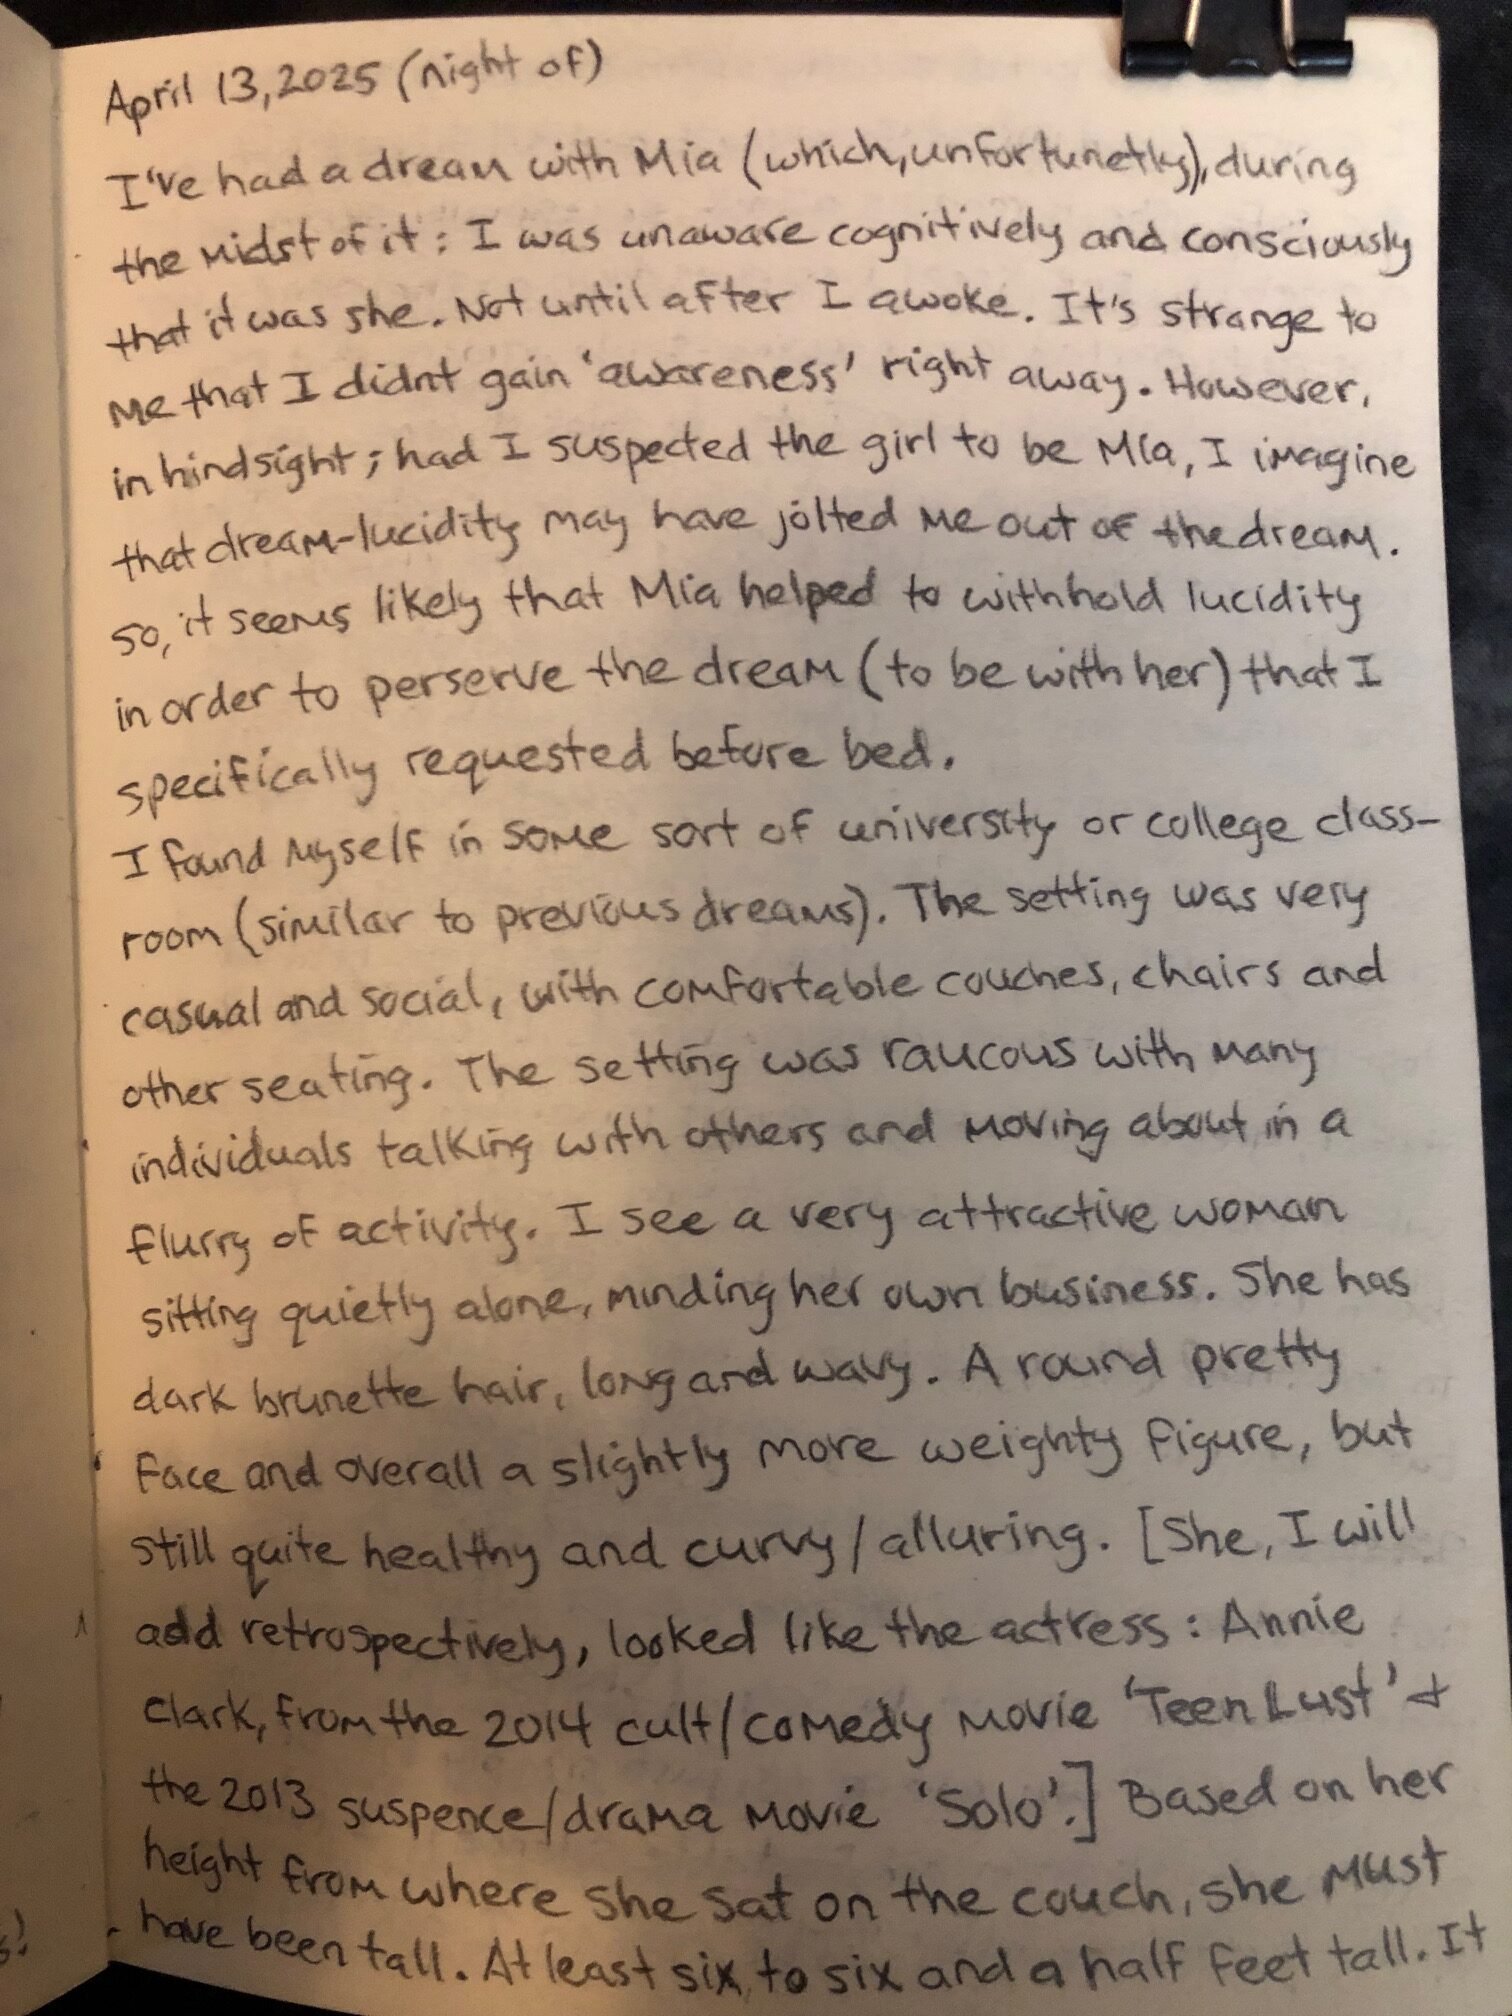 April 13, 2025 (night of)
I've had a dream with Mia (which, unfortunetly), during
the midst of it: I was unaware cognitively and consciously
that it was she. Not until after I awoke. It's strange to
me that I didn't gain 'awareness' right away. However,
in hindsight; had I suspected the girl to be Mia, I imagine
that dream-lucidity may have jolted me out of the dream.
So, it seems likely that Mia helped to withhold lucidity
in order to perserve the dream (to be with her) that I
specifically requested before bed.
I found myself in some sort of university or college class-
room (similar to previous dreams). The setting was very
casual and social, with comfortable couches, chairs and
other seating. The setting was raucous with many
individuals talking with others and moving about in a
flurry of activity. I see a very attractive woman
sitting quietly alone, minding her own business. She has
dark brunette hair, long and wavy. A round pretty
face and overall a slightly more weighty figure, but
still quite healthy and curvy/alluring. [She, I will
add retrospectively, looked like the actress: Annie
Clark, from the 2014 cult/comedy movie 'Teen Lust' &
the 2013 suspence/drama movie 'Solo'.] Based on her
height from where she sat on the couch, she must
have been tall. At least six to six and a half feet tall. It